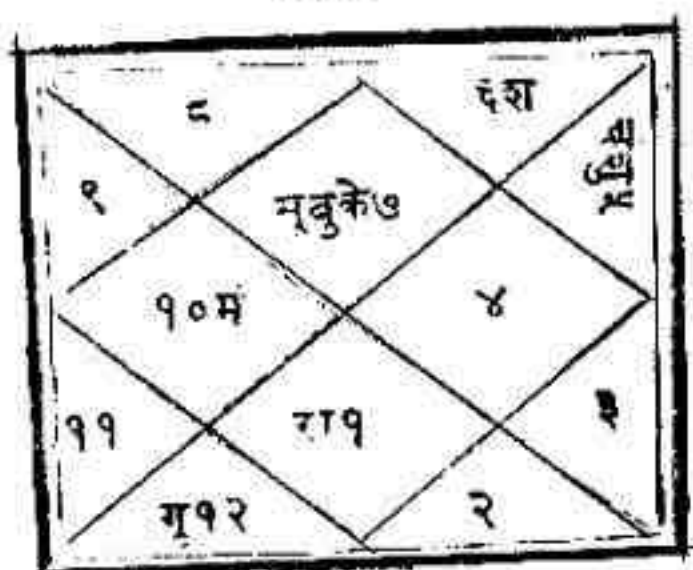 ८ ६श
९ सूबुके७
१०मं ४
११ रा१ ३
गु१२ २